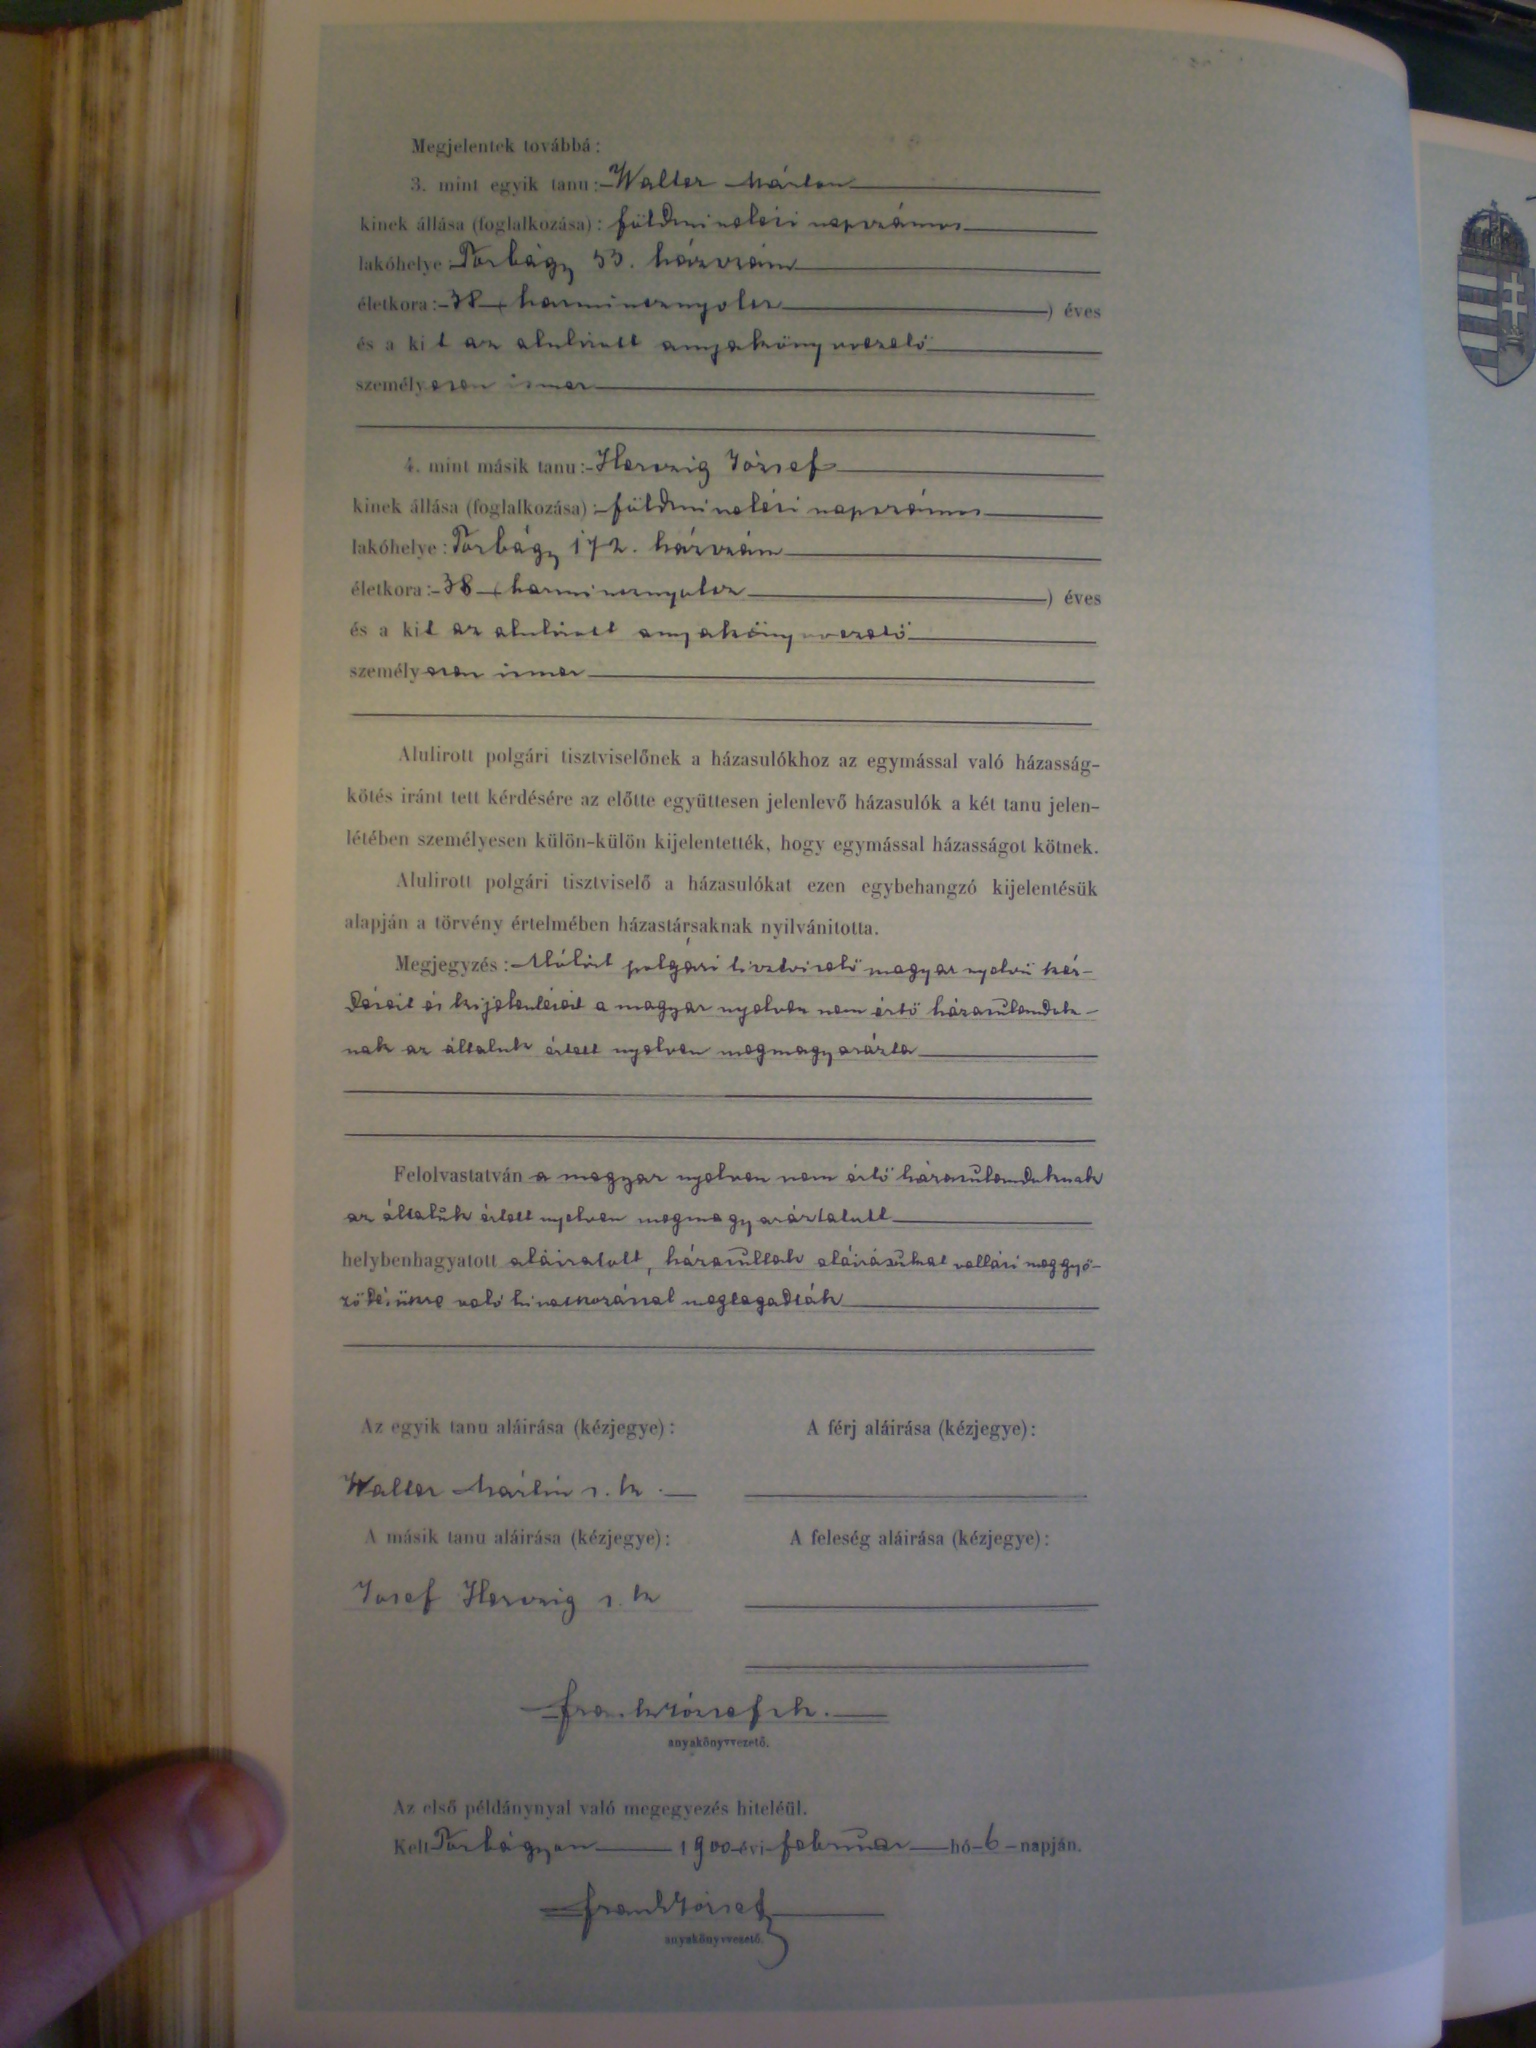 Megjelentek továbbá:
3. mint egyik tanu: Walter Márton
kinek állása (foglalkozása): földmivelési napszámos
lakóhelye: Torbágy 53. házszám
életkora: 38 (harmincznyolcz) éves
és a kit az alulirott anyakönyvvezető
személyesen ismer
4. mint másik tanu: Herczig József
kinek állása (foglalkozása): földmivelési napszámos
lakóhelye: Torbágy 172. házszám
életkora: 38 (harmincznyolcz) éves
és a kit az alulirott anyakönyvvezető
személyesen ismer
Alulirott polgári tisztviselőnek a házasulókhoz az egymással való házasság-
kötés iránt tett kérdésére az előtte együttesen jelenlevő házasulók a két tanu jelen-
létében személyesen külön-külön kijelentették, hogy egymással házasságot kötnek.
Alulirott polgári tisztviselő a házasulókat ezen egybehangzó kijelentésük
alapján a törvény értelmében házastársaknak nyilvánitotta.
Megjegyzés: Alólirt polgári tisztviselő magyar nyelvü kér-
déseit és kijelentéseit a magyar nyelven nem értő házasulandók-
nak az általuk értett nyelven megmagyarázta
Felolvastatván a magyar nyelven nem értő házasulandóknak
az általuk értett nyelven megmagyaráztatott
helybenhagyatott aláiratott, házasultak aláirásukat vallási meggyő-
ződésükre való hivatkozással megtagadták
Az egyik tanu aláirása (kézjegye): A férj aláirása (kézjegye):
Walter Mártin s. k.
A másik tanu aláirása (kézjegye): A feleség aláirása (kézjegye):
Josef Herczig s. k
Frank József s. k.
anyakönyvvezető.
Az első példánynyal való megegyezés hiteléül.
Kelt Torbágyon 1900 évi február hó 6 napján.
Frank József
anyakönyvvezető.